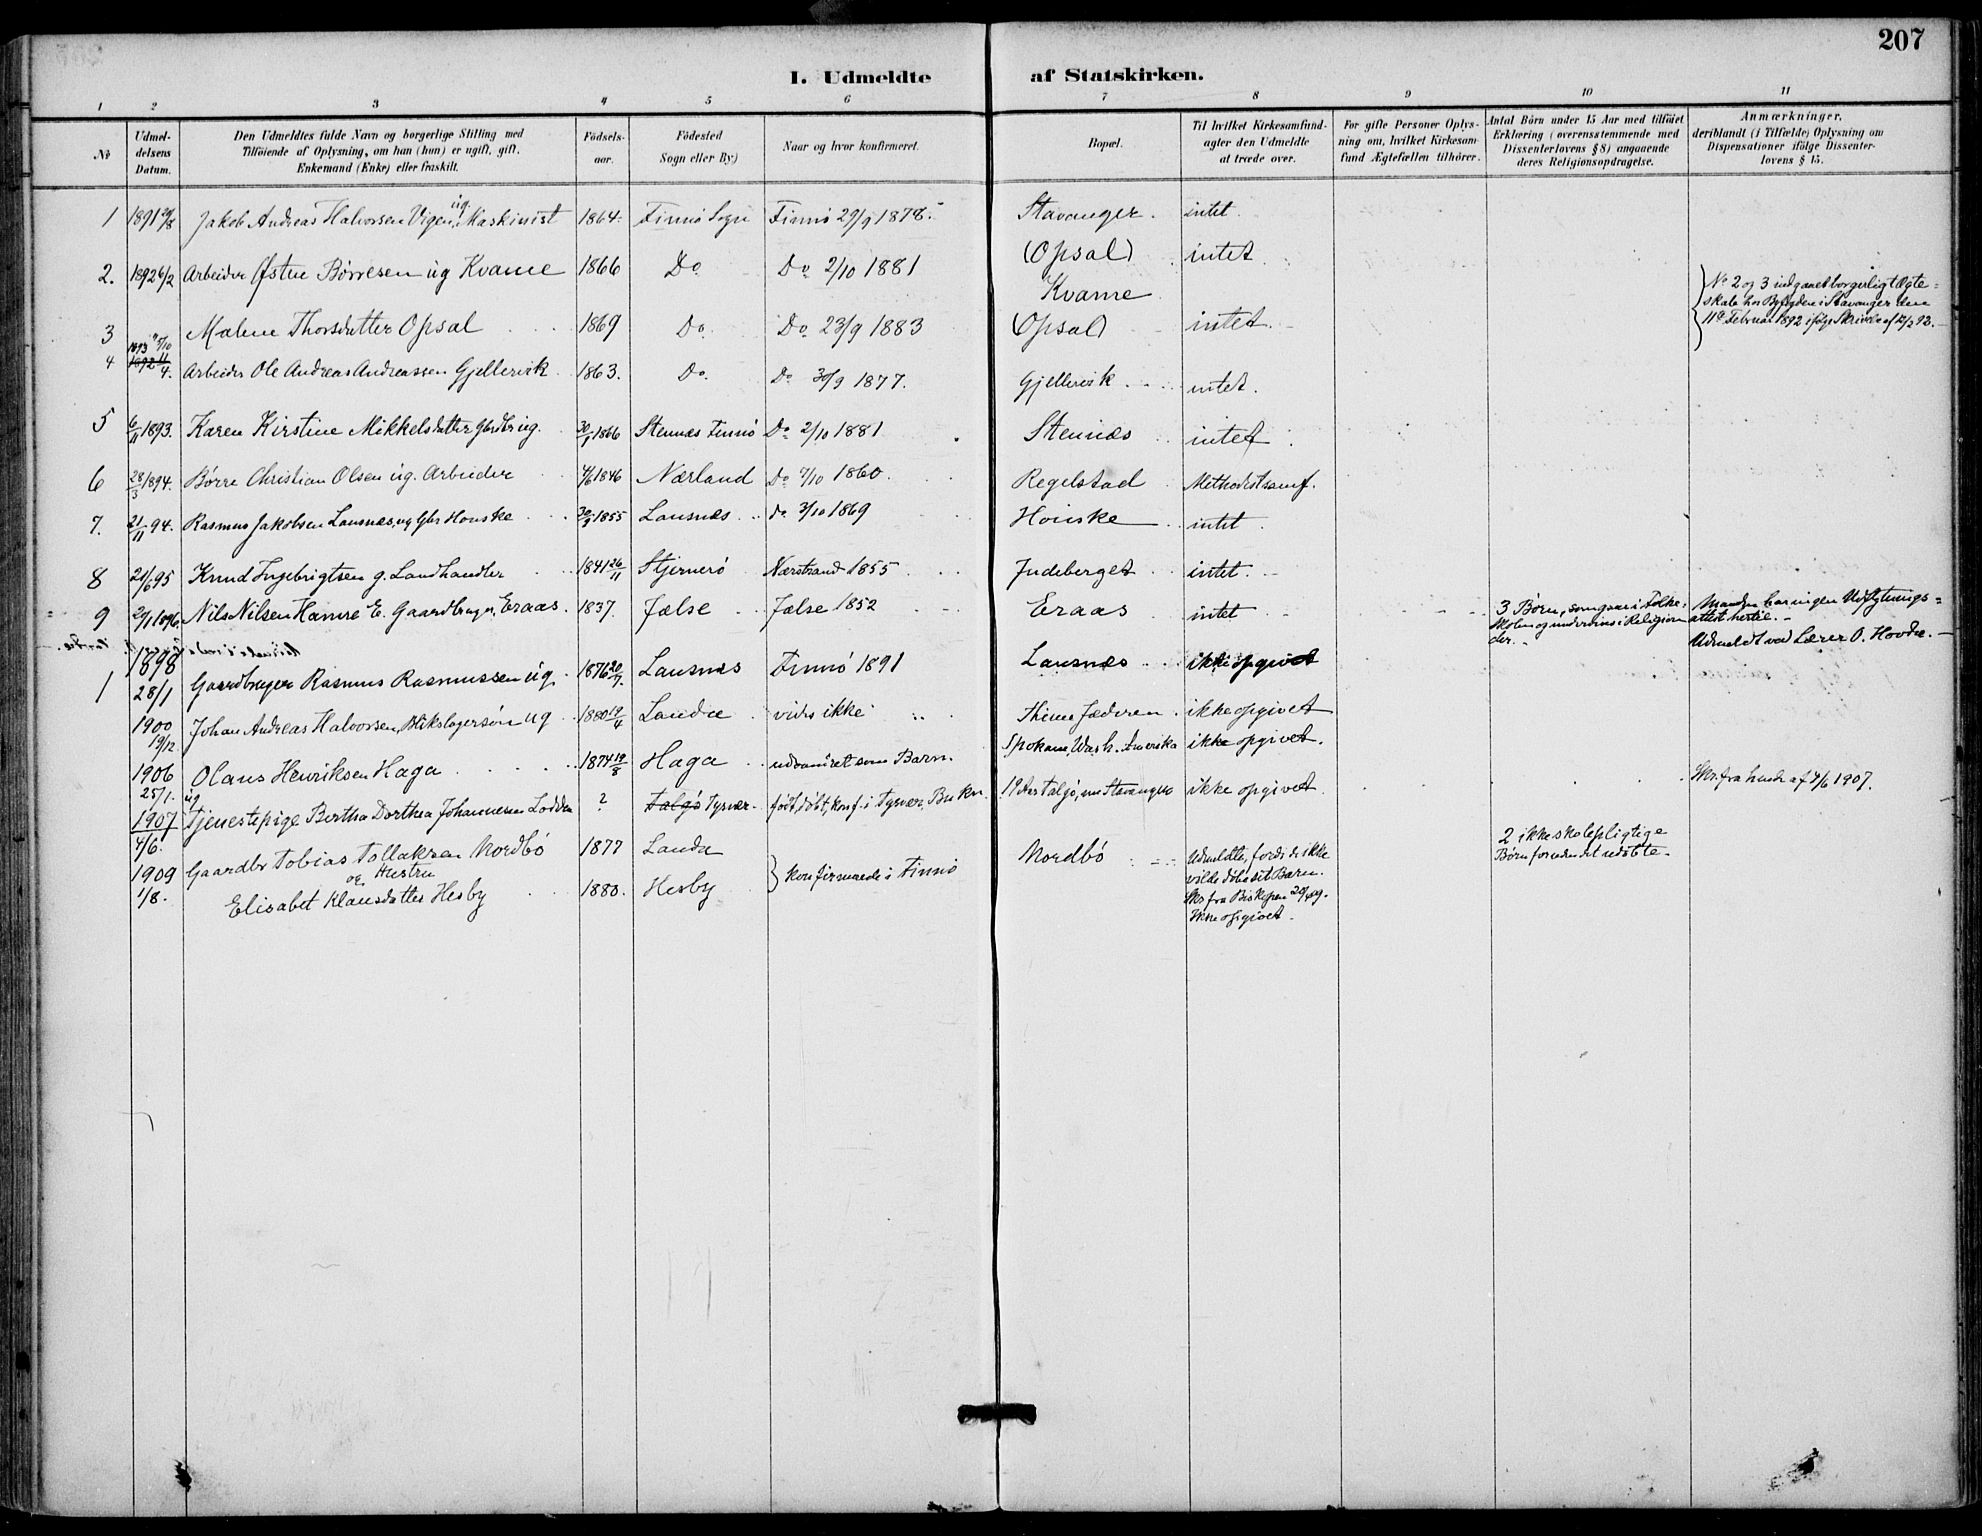 207
I. Udmeldte af Statskirken.
1 2 3 4 5 6 7 8 9 10 11
No
Udmel-
delsens
Datum.
Den Udmeldtes fulde Navn og borgerlige Stilling med
Tilföiende af Oplysning, om han (hun) er ugift, gift,
Enkemand (Enke) eller fraskilt.
Födsels-
aar.
Födested
Sogn eller By)
Naar og hvor konfirmeret.
Bopæl.
Til hvilket Kirkesamfund-
agter den Udmeldte
at træde over.
For gifte Personer Oplys-
ning om, hvilket Kirkesam-
fund Ægtefællen tilhörer.
Antal Börn under 15 Aar med tilföiet
Erklæring (overensstemmende med
Dissenterlovens § 8) angaaende
deres Religionsopdragelse.
Anmærkninger,
deriblandt (i Tilfælde) Oplysning om
Dispensationer ifölge Dissenter-
lovens § 15.
1 1891 Jakob Andreas Halvorsen Vigen, ug. Maskinist 1864. Finnö Sogn Finnö 29/9 1878. Stavanger. intet.
2. 1892 6/2 Arbeider Østen Börresen ug Kvame 1866 Do Do 2/10 1881 (Opsal) Kvame intet
3 Malene Thorsdatter Opsal 1869 Do. Do. 23/9 1883 (Opsal) intet.
No 2 og 3 indgaaet borgerligt Ægte-
skab hos Byfogden i Stavanger den
11te Februar 1892 ifölge Skrivelse af 12/2 92.
4 1893 5/10 1892 11/4. Arbeider Ole Andreas Andreassen Gjellervik 1863. Do. Do 30/9 1877. Gjellervik intet.
5 6/11 1893. Karen Kirstine Mikkelsdatter ug. 30/1 1866 Stennæs Finnö Do 2/10 1881 Stennæs intet
6 28/3 1894. Börre Christian Olsen ug. Arbeider 4/6 1846 Nærland Do 7/10 1860. Regelstad Methodistsamf.
7. 21/11 94. Rasmus Jakobsen Lausnæs, ug Gbr Houske 30/9 1855 Lausnæs Do 3/10 1869 Houske intet
8 21/6 95 Knud Ingebrigtsen g. Landhandler 1841 26/11 Stjernerö Nærstrand 1855 Judeberget intet.
9 21/1 1896. Nils Nilsen Hamre E. Gaardbruger, Eraas. 1837. Jælse Jælse 1852 Eraas intet
3 Börn, som gaar i Folke-
skolen og undervises i Religion
der.
Manden har ingen Udflytnings-
attest hertil.
Udmeldt ved Lærer O. Hovda.
1 1898 28/1 Gaardbruger Rasmus Rasmussen ug. 1876 20/7. Lausnæs Finnö 1891 Lausnæs ikke opgivet
1900 19/12 Johan Andreas Halvorsen, Blikslagersön ug 1880 19/4 Landa vides ikke Thime Jæderen. ikke opgivet
1906 25/1. Olaus Henriksen Haga 1874 19/8 Haga udvandret som Barn. Spokane, Wash. Amerika ikke opgivet.
1907 4/6. ug Tjenestepige Bertha Dorthea Johannesen Lodden ? Talgö Tysvær. födt, döbt, konf. i Tysvær, Bukn. Talgö, nu Stavanger ikke opgivet. Skr. fra hende af 4/6 1907.
1909 1/8. Gaardbr Tobias Tollaksen Nordbö 1877 Landa
og Hustru
Elisabet Klausdatter Hesby 1880. Hesby konfirmerede i Finnö Nordbö
Udmeldte, fordi de ikke
vilde döbe sit Barn.
Skr. fra Biskopen
Ikke opgivet.
2 ikke skolepligtige
Börn foruden det udöbte.